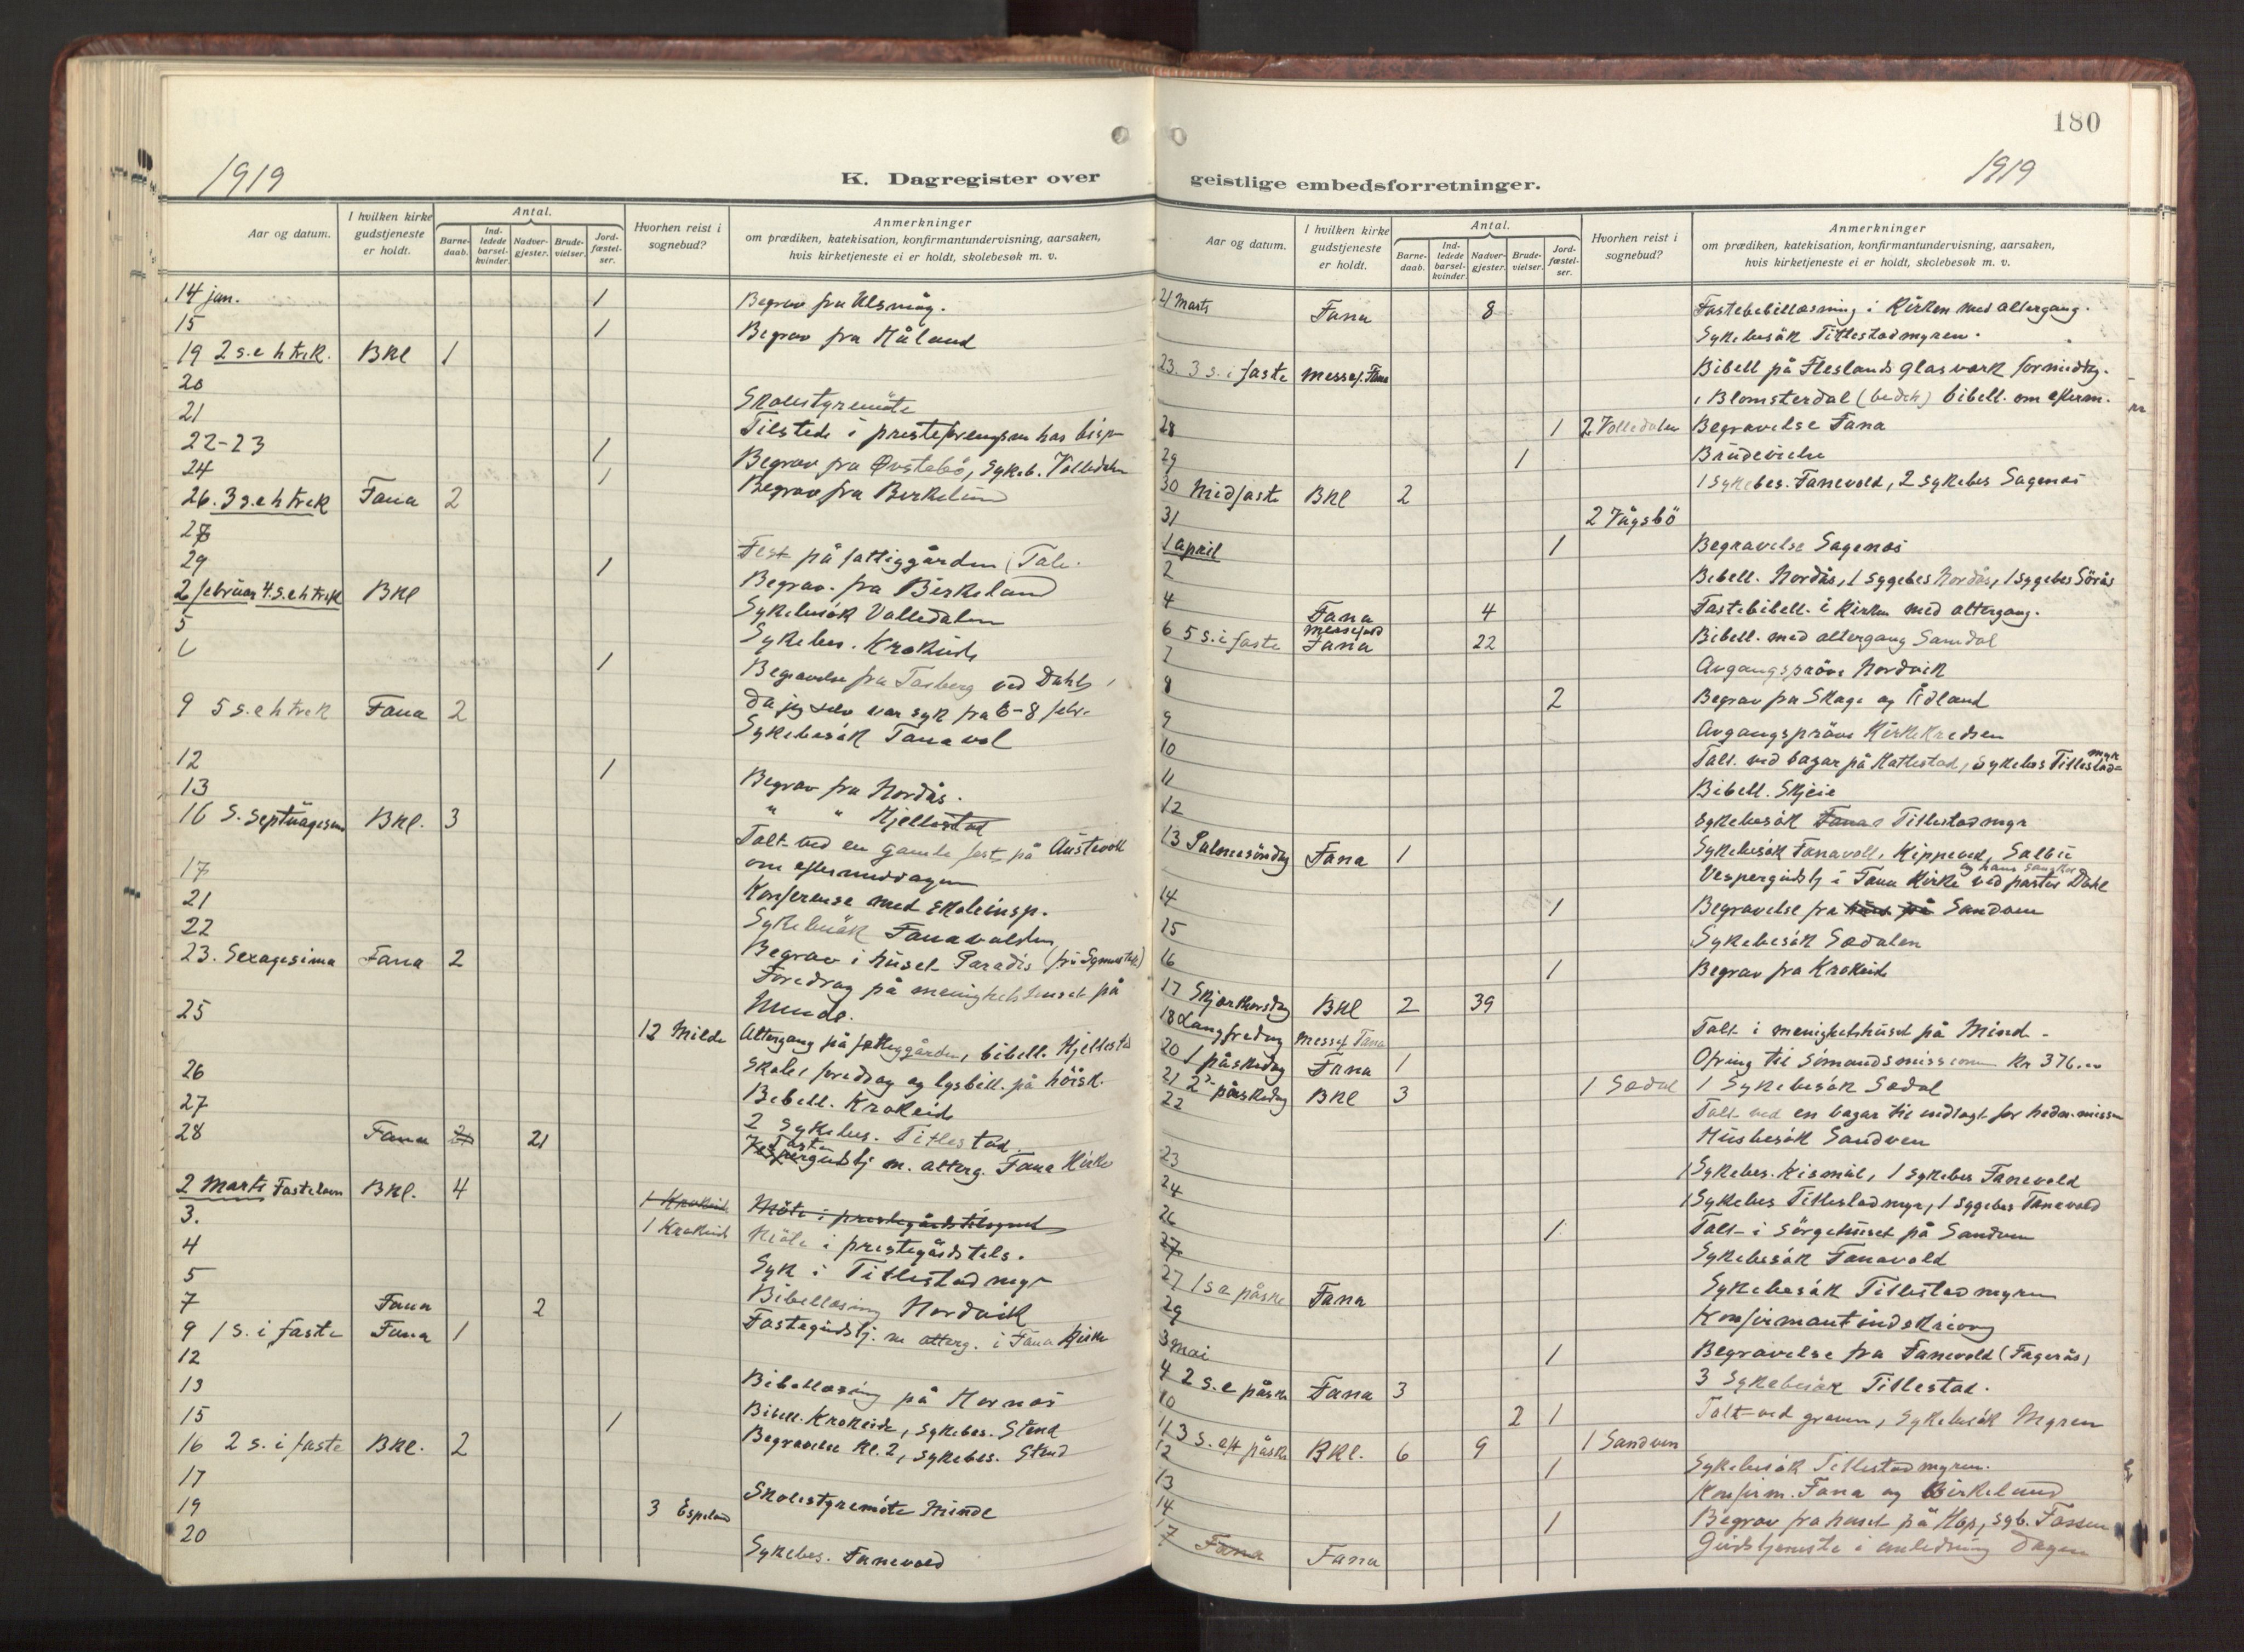 180
1919
1919
K. Dagregister over
geistlige embedsforretninger.
Aar og datum.
I hvilken kirke gudstjeneste er holdt.
Antal.
Barne-daab.
Ind-ledede barsel-kvinder.
Nadver-gjester.
Brude-vielser.
Jord-fæstel-ser.
Hvorhen reist i sognebud?
Anmerkninger
om prædiken, katekisation, konfirmantundervisning, aarsaken,
hvis kirketjeneste ei er holdt, skolebesøk m. v.
14 jan. 1 Begrav fra
15 1 Begrav fra Håland
19 2 s. e h trek. BKl 1
20 Skolestyremöte
21 Tilstede i
22-23 1 Begrav fra Øvstebö, Sykeb. Volledalen
24 1 Begrav fra Birkeland
26. 3 s. e h trek Fana 2
28
29 1 Fest på fattiggården (Tale.
2 februar 4. s. e h trek BKl Begrav. fra Birkeland
5 Sykebesök Volledalen
6 1 Sykebes. Krokeide
Begravelse fra ved Dahl,
9 5 s. e h trek Fana 2 da jeg selv var syk fra 6-8 febr.
Sykebesök Fanavol
12 1
13 Begrav fra Nordås.
16 S. Septuagesim BKl. 3 " " Hjellestad
Talt ved en gamle fest på Austevoll
17 om eftermiddagen
21 Konferense med skoleinsp.
22 Sykebesök Fanavolden
23. Sexagesima Fana 2 Begrav i huset Paradis
Foredrag på menighetshuset på
25 Minde.
12 Milde Altergang på fattiggården, bibell. Hjellestad
26 foredrag og lysbill. på höisk.
27 Bibell. Krokeide
28 Fana 21 2 Sykebes. Titlestad
Faste gudstj m. alterg. Fana Kirke
2 Marts Fastelavn BKl. 4
3. 1 Krokeide Möte i prestegårdstilsynet
4 1 Krokeide Möte i prestegårdstils.
5 Syk i Titlestadmyr
7 Fana 2 Bibellesing Nordvik
9 1 s. i faste Fana 1 Fastegudstj. m alterg. i Fana Kirke
12
13 Bibellesing på Hornes
15 1 Bibell. Krokeide, Sykebes. Stend
16 2 s. i faste BKl. 2 Begravelse Kl. 2, Sykebes. Stend
17
19 3 Espeland Skolestyremöte Minde
20
Sykebes. Fanevold
Aar og datum.
I hvilken kirke gudstjeneste er holdt.
Antal.
Barne-daab.
Ind-ledede barsel-kvinder.
Nadver-gjester.
Brude-vielser.
Jord-fæstel-ser.
Hvorhen reist i sognebud?
Anmerkninger
om prædiken, katekisation, konfirmantundervisning, aarsaken,
hvis kirketjeneste ei er holdt, skolebesøk m. v.
21 Marts Fana 8 Fastebibellesning i Kirken med altergang.
Sykebesök Titlestadmyren.
23. 3 s. i faste messef. Fana Bibell på Fleslands Glasverk formidag.
i Blomsterdal (bedeh) bibell. om efterm.
28 1 2 Volledalen Begravelse Fana
29 1 Brudevielse
30 Midfaste BKl 2 1 Sykebes. Fanevold, 2 sykebes Sagenes
31 2 Vågsbö
1 april 1 Begravelse Sagenes
2 Bibell. Nordås, 1 sygebes Nordås, 1 sygebes Sörås
4 Fana 4 Fastebibell. i Kirken med altergang.
6 5 s. i faste Fana 22 Bibell. med altergang Samdal
7 Avgangspröve Nordvik
8 2 Begrav fra Skage og Ådland
9 Avgangspröve Kirkekredsen
10 Talt ved basar på Kattestad, sykebes Titlestad= myr
11 Bibell. Skjeie
12 Sykebesök Titlestadmyr
13 Palmesöndag Fana 1 Sykebesök Fanavoll,
Vespergudstj i Fana Kirke ved pastor Dahl
og hans sangkor
14 1 Begravelse fra Sandven
15 Sykebesök Sædalen
16 1 Begrav fra Krokeide
17 Skjærtorsdag BKl 2 39
18 Langfredag Messef Fana Talt i menighetshuset på Mind-
20 1 påskedag Fana 1 Ofring til Sömandsmissionen Kr 376.00
21 2den påskedag BKl 3 1 Sædal 1 Sykebesök Sædal
22 Talt ved en basar til indtægt for hedn. misjon
Husbesök Sandven
23 1 Sykebes. Kismul, 1 Sykebes Fanevold
24 1 Sykebes Titlestadmyr, 1 Sygebes Fanevold
26 1 Talt i Sörgehuset på Sandven
27 Sykebesök Fanavold
27 1 s e påske Fana Sykebesök Titlestadmyren
29 Konfirmantindskriving
3 mai 1 Begravelse fra Fanevold (Fagerås)
4 2 s. e påske Fana 3 3 Sykebesök Titlestad.
10 2 1 Talt ved graven, Sykebesök Myren
11 3 s. eft påske BKl. 6 9 1 Sandven
12 1 Sykebesök Titlestadmyren.
13 Konfirm. Fana og Birkeland
14 1 Begrav fra huset på Hop, sgb. Fossen
17 Fana Fana Gudstjeneste i anledning Dagen